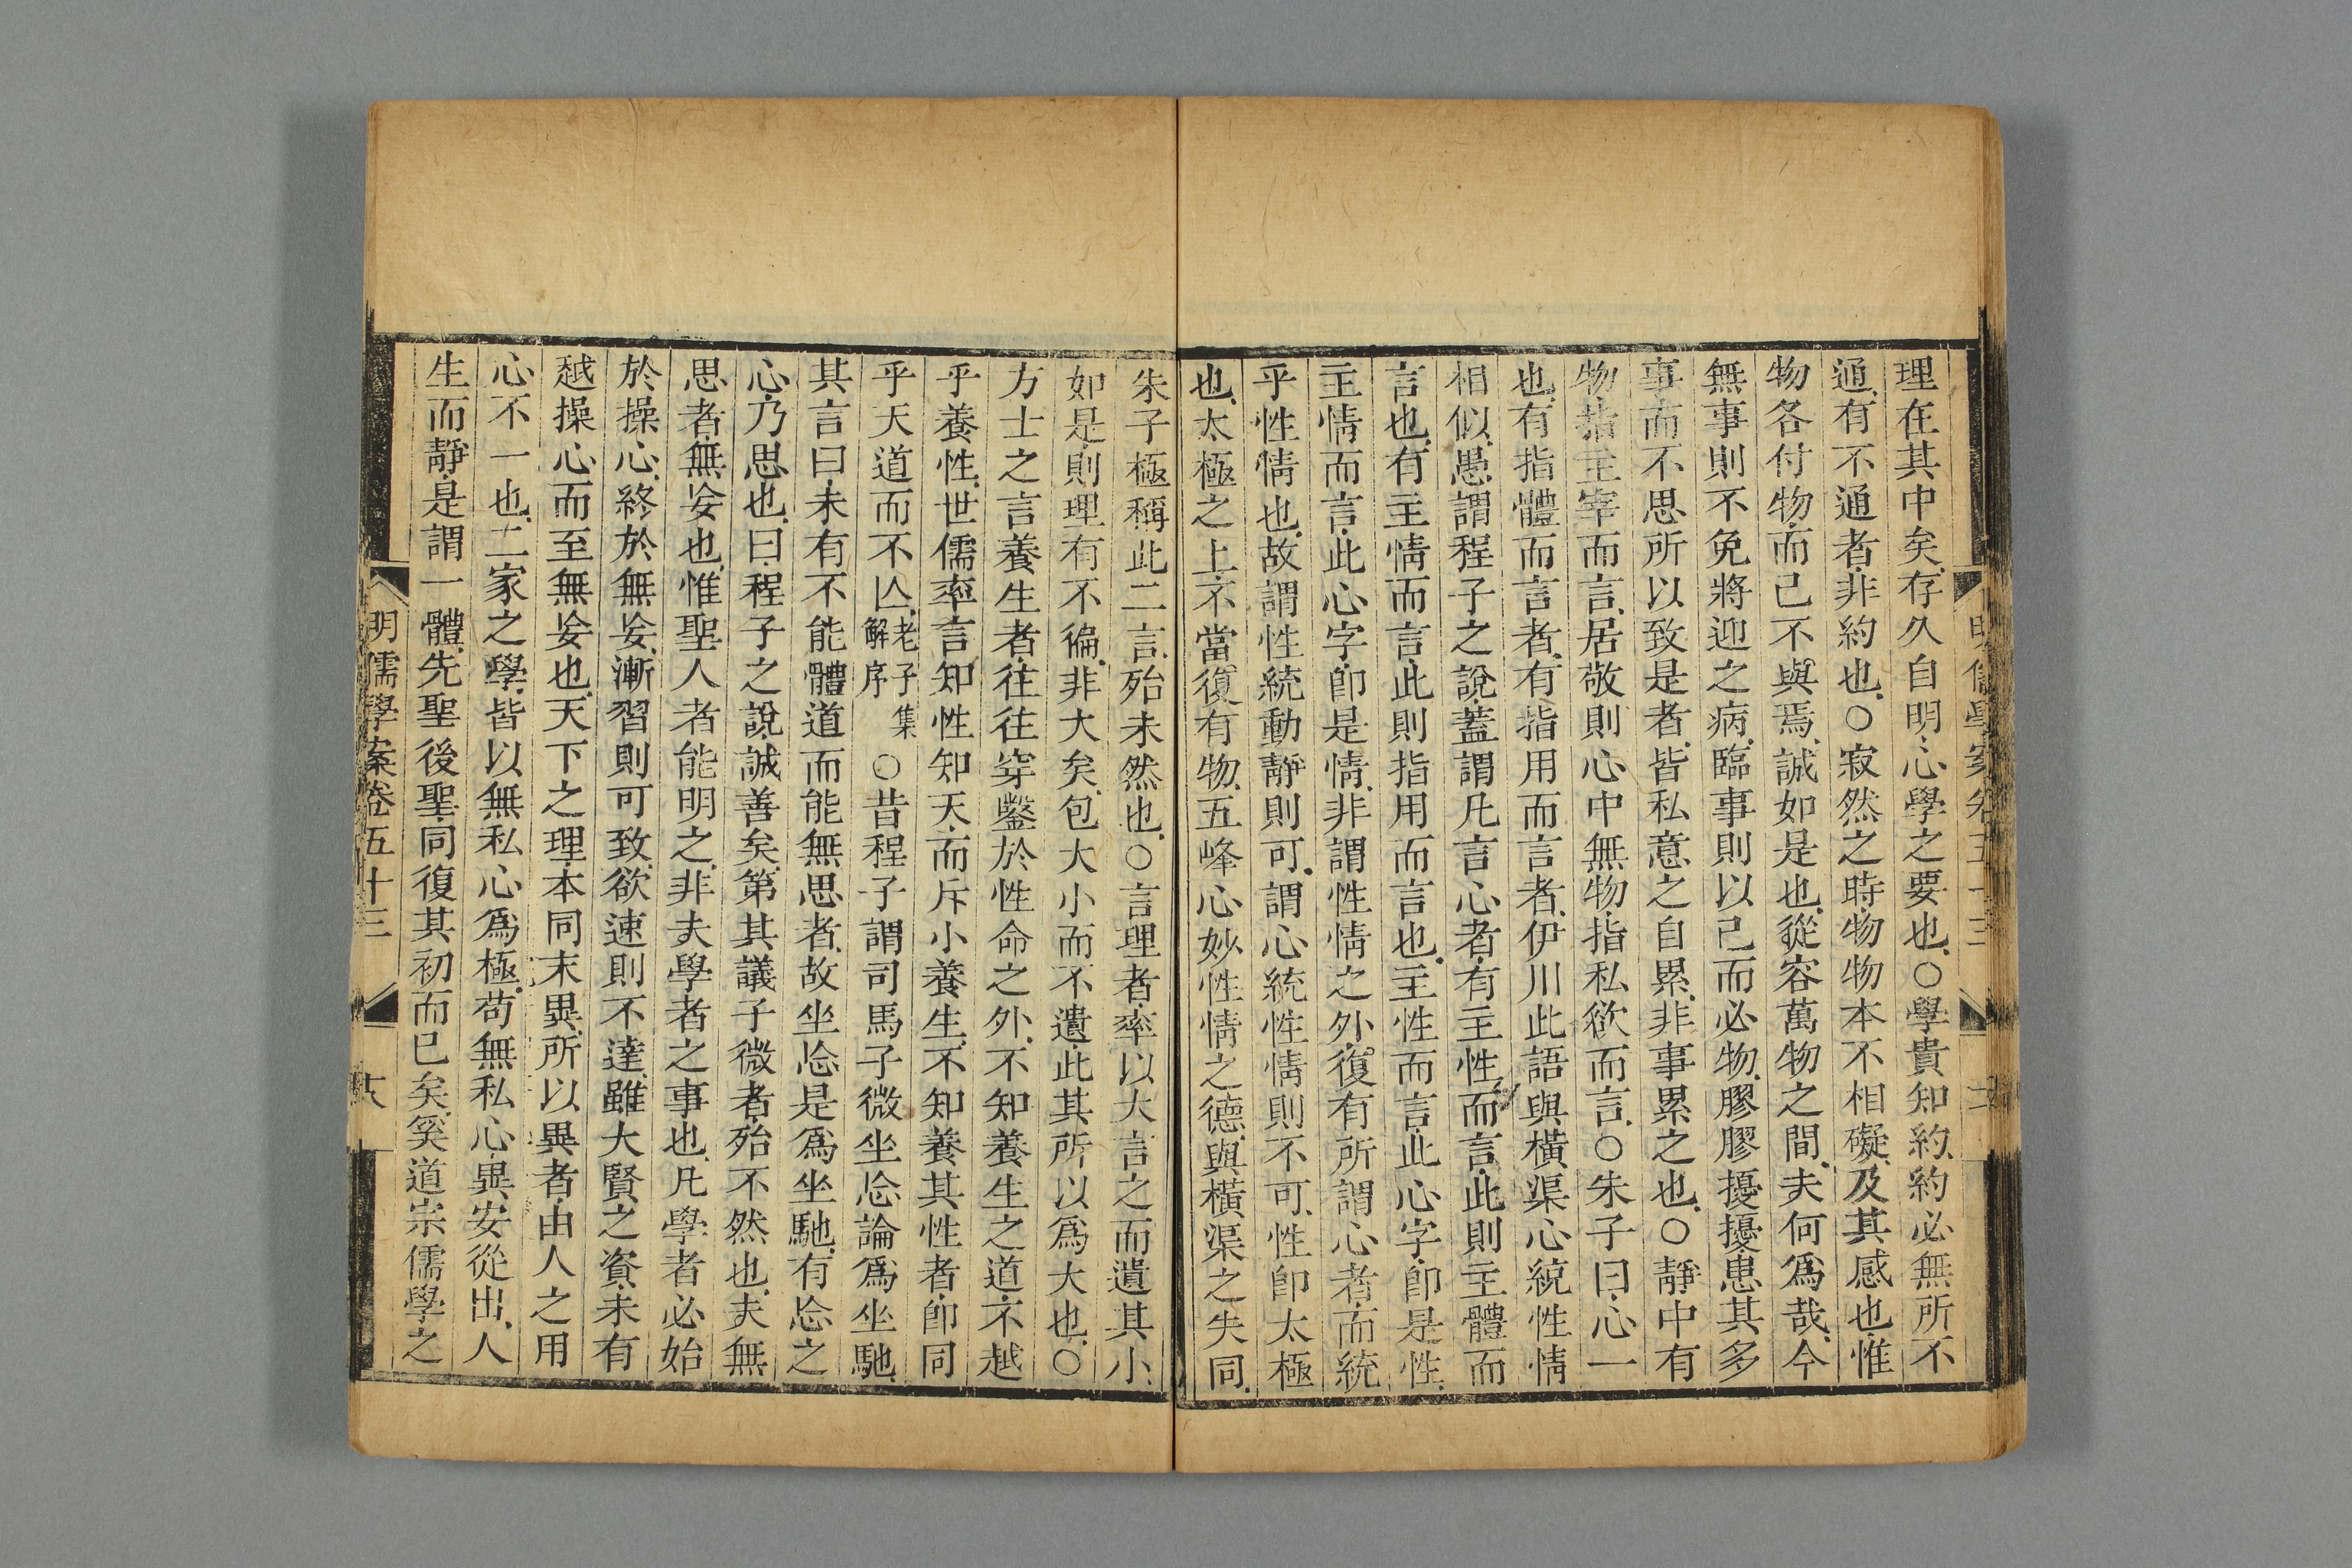 理在其中矣存久自明心學之要也○學貴知約約必無所不
通有不通者非約也○寂然之時物物本不相礙及其感也惟
物各付物而已不與焉誠如是也從容萬物之間夫何爲哉今
無事則不免將迎之病臨事則以己而必物膠膠擾擾患其多
事而不思所以致是者皆私意之自累非事累之也○靜中有
物指主宰而言居敬則心中無物指私欲而言○朱子曰心一
也有指體而言者有指用而言者伊川此語與橫渠心統性情
相似愚謂程子之說蓋謂凡言心者有主性而言此則主體而
言也有主情而言此則指用而言也主性而言此心字卽是性
主情而言此心字卽是情非謂性情之外復有所謂心者而統
乎性情也故謂性統動靜則可謂心統性情則不可性卽太極
也太極之上不當復有物五峰心妙性情之德與橫渠之失同
朱子極稱此二言殆未然也○言理者率以大言之而遺其小
如是則理有不徧非大矣包大小而不遺此其所以爲大也○
方士之言養生者往往穿鑿於性命之外不知養生之道不越
乎養性世儒率言知性知天而斥小養生不知養其性者卽同
乎天道而不亾老子集解序○昔程子謂司馬子微坐忘論爲坐馳
其言曰未有不能體道而能無思者故坐忘是爲坐馳有忘之
心乃思也曰程子之說誠善矣第其議子微者殆不然也夫無
思者無妄也惟聖人者能明之非夫學者之事也凡學者必始
於操心終於無妄漸習則可致欲速則不達雖大賢之資未有
越操心而至無妄也天下之理本同末異所以異者由人之用
心不一也二家之學皆以無私心爲極苟無私心異安從出人
生而靜是謂一體先聖後聖同復其初而已矣奚道宗儒學之
明儒學案卷五十三